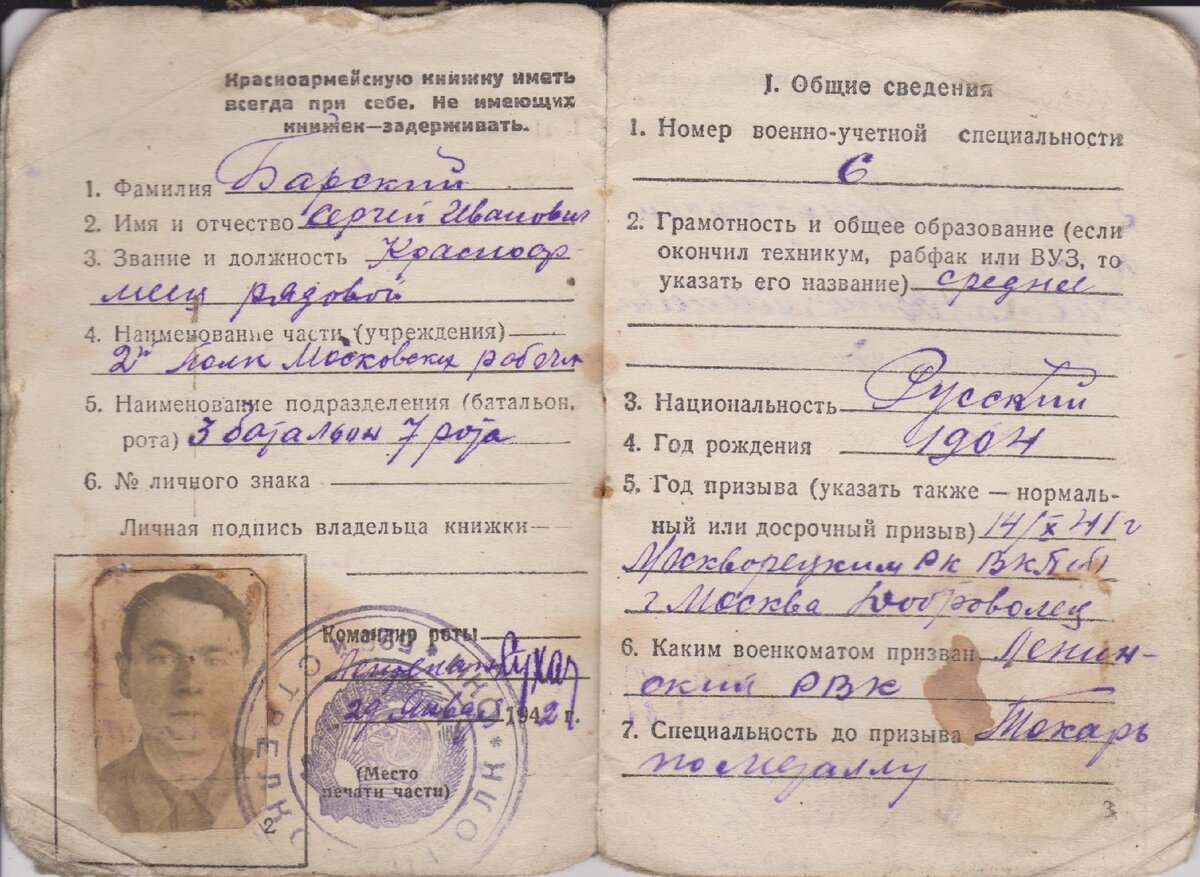 Красноармейскую книжку иметь
всегда при себе. Не имеющих
книжек—задерживать.
1. Фамилия Барский
2. Имя и отчество Сергей Иванович
3. Звание и должность Красноар-
меец рядовой
4. Наименование части (учреждения)
2й Полк Московских рабочих
5. Наименование подразделения (батальон,
рота) 3 батальон 7 рота
6. № личного знака
Личная подпись владельца книжки
Командир роты
29 Января 1942 г.
(Место
печати части)
2
I. Общие сведения
1. Номер военно-учетной специальности
6
2. Грамотность и общее образование (если
окончил техникум, рабфак или ВУЗ, то
указать его название) среднее
3. Национальность Русский
4. Год рождения 1904
5. Год призыва (указать также — нормаль-
ный или досрочный призыв) 14/X 41 г
Москворецким РК ВКП(б)
г Москва Доброволец
6. Каким военкоматом призван Ленин-
ский РВК
7. Специальность до призыва Токарь
по металлу
3